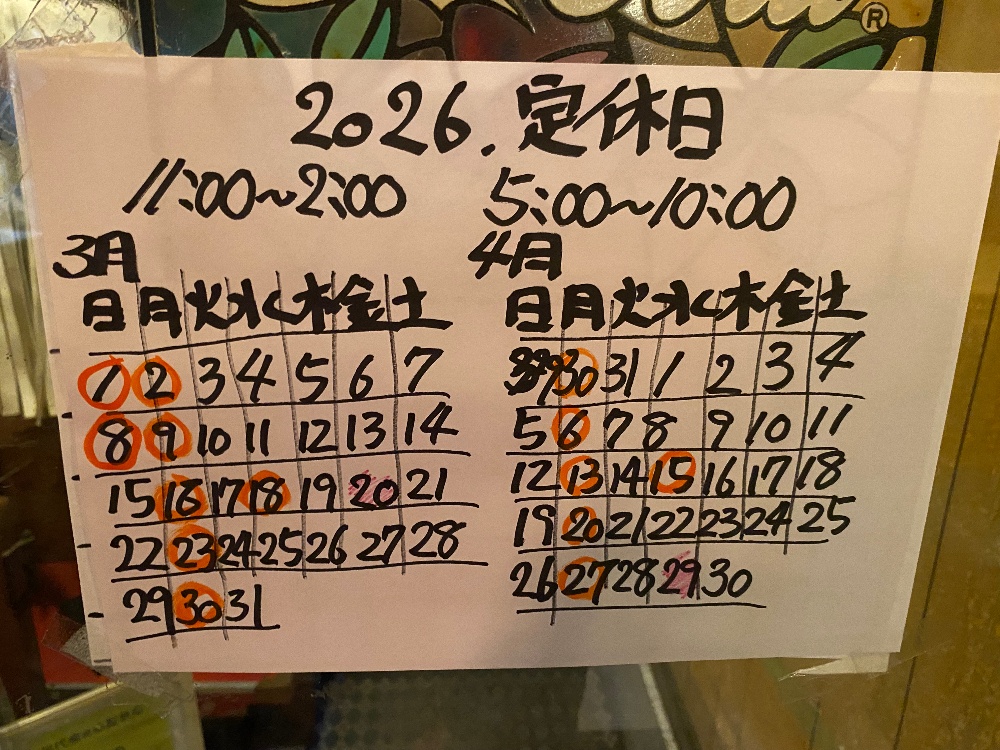 ®
2026.定休日
11:00~2:00 5:00~10:00
3月
日月火水木金土
1 2 3 4 5 6 7
8 9 10 11 12 13 14
15 16 17 18 19 20 21
22 23 24 25 26 27 28
29 30 31
4月
日月火水木金土
30 31 1 2 3 4
5 6 7 8 9 10 11
12 13 14 15 16 17 18
19 20 21 22 23 24 25
26 27 28 29 30